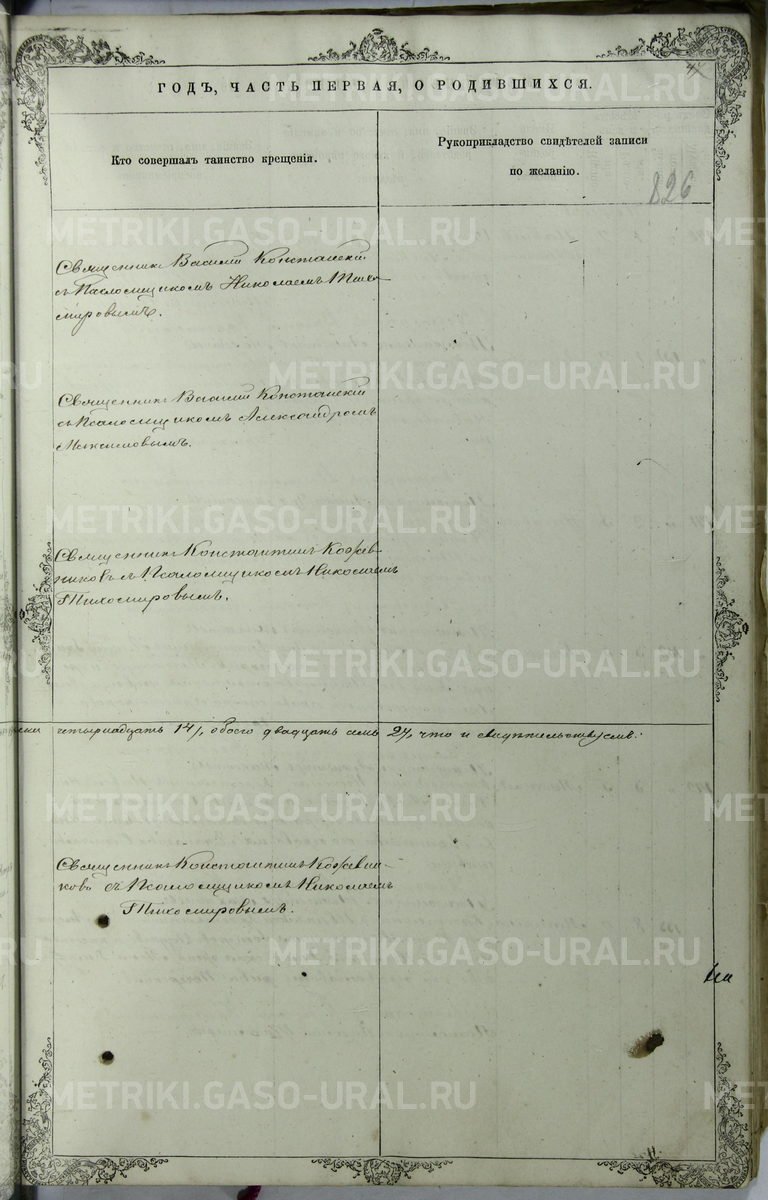 ГОДЪ, ЧАСТЬ ПЕРВАЯ, О РОДИВШИХСЯ.
Кто совершалъ таинство крещенія.
Рукоприкладство свидѣтелей записи
по желанію.
826
Священникъ Василій
съ Псаломщикомъ Николаемъ Тихо-
мировымъ.
Священникъ Василій
съ Псаломщикомъ Александромъ
Священникъ Константинъ Кожев-
никовъ съ Псаломщикомъ Николаемъ
Тихомировымъ.
четырнадцать 14, обоего двадцать семь 27, что и свидѣтельствуемъ:
Священникъ Константинъ Кожевни-
ковъ съ Псаломщикомъ Николаемъ
Тихомировымъ.
METRIKI.GASO-URAL.RU